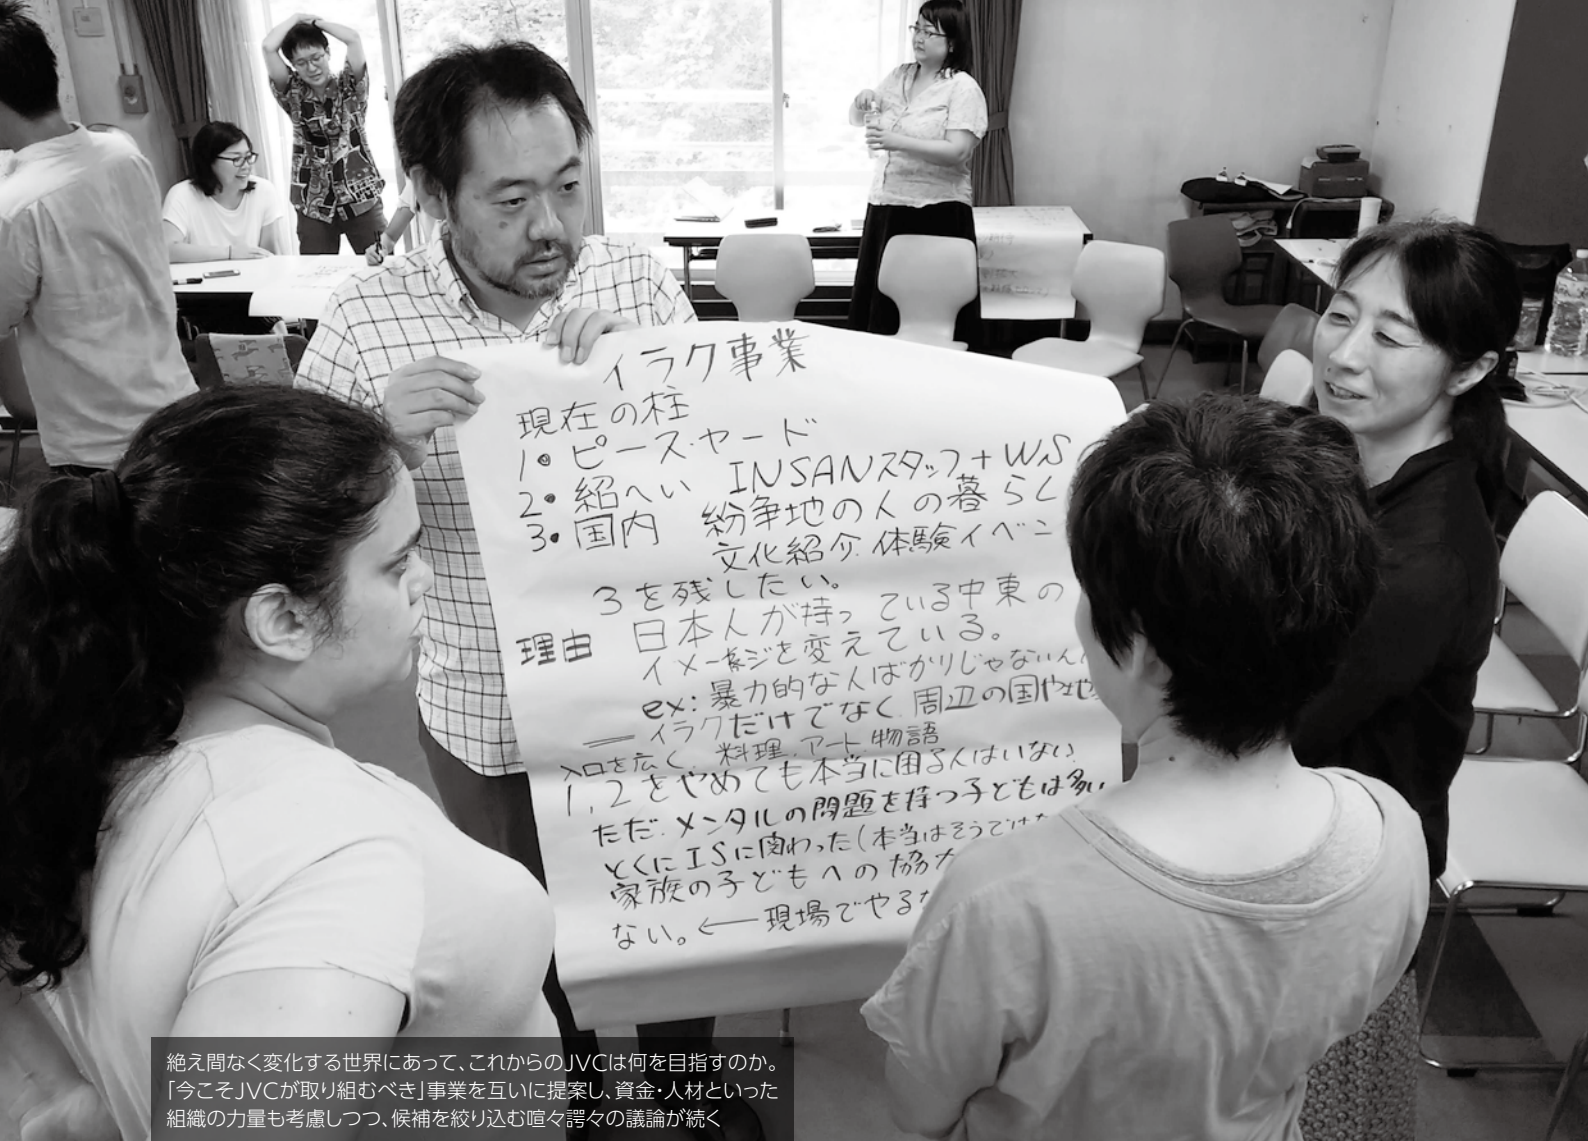 イラク事業
現在の柱
1. ピース・ヤード
2. 紹へい INSANスタッフ+WS
3. 国内 紛争地の人の暮らし
文化紹介.体験イベン
3を残したい。
理由 日本人が持っている中東の
イメージを変えている。
ex:暴力的な人ばかりじゃないん
イラクだけでなく.周辺の国や地
入口を広く.料理.アート.物語
1,2をやめても本当に困る人はいない
ただ.メンタルの問題を持つ子どもは多い
とくにISに関わった(本当はそうでは
家族の子どもへの協力
ない。←現場でやる
絶え間なく変化する世界にあって、これからのJVCは何を目指すのか。
「今こそJVCが取り組むべき」事業を互いに提案し、資金・人材といった
組織の力量も考慮しつつ、候補を絞り込む喧々諤々の議論が続く